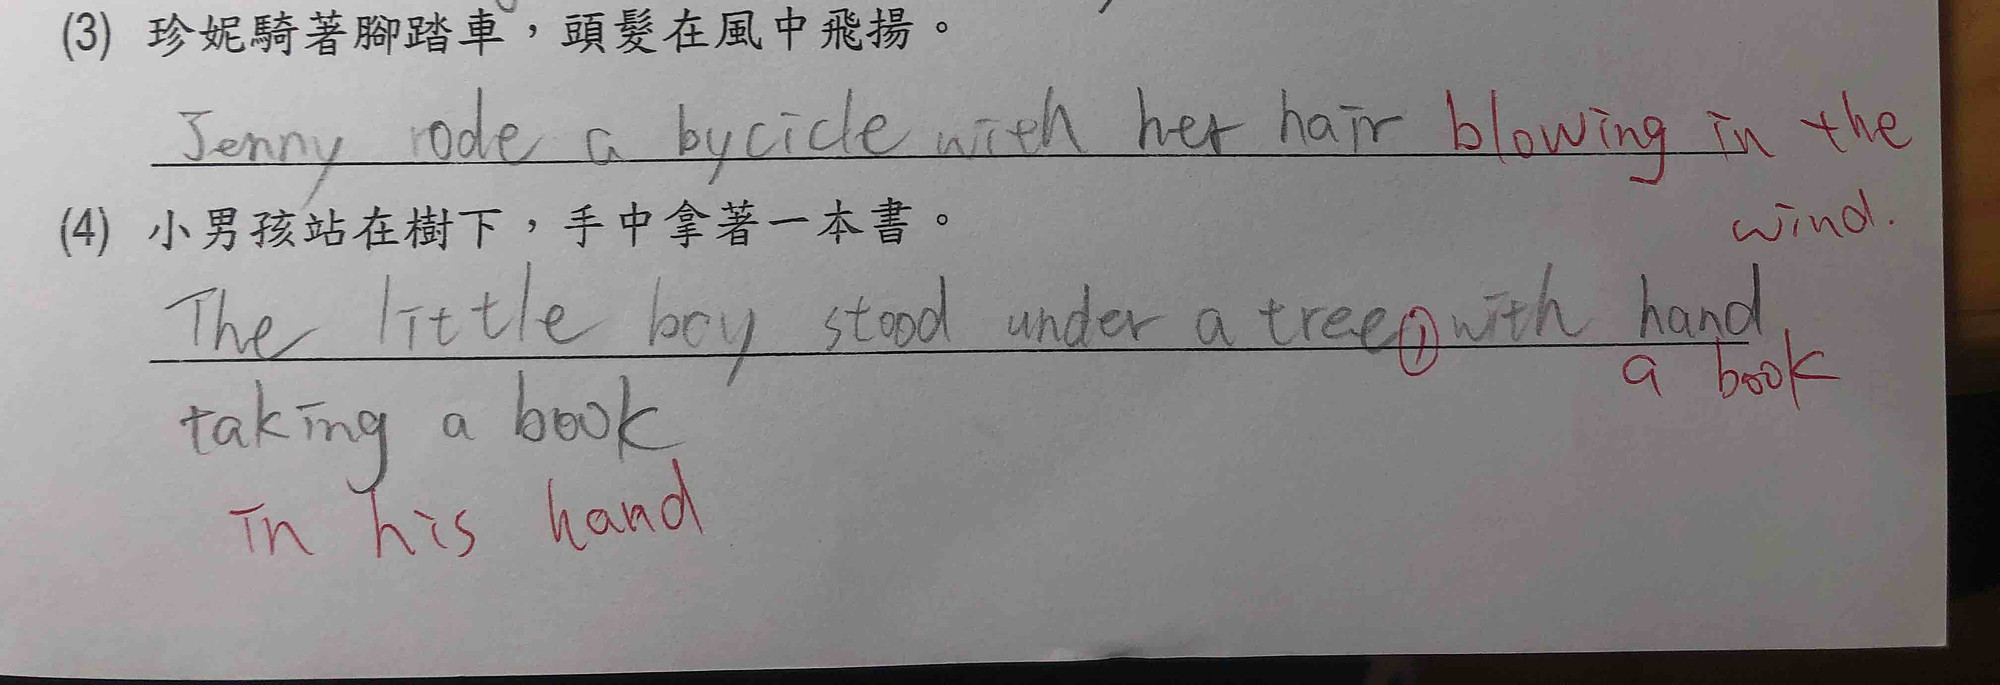 (3) 珍妮騎著腳踏車，頭髮在風中飛揚。
Jenny rode a bycicle with her hair blowing in the
wind.
(4) 小男孩站在樹下，手中拿著一本書。
The little boy stood under a tree, with hand
a book
taking a book
in his hand